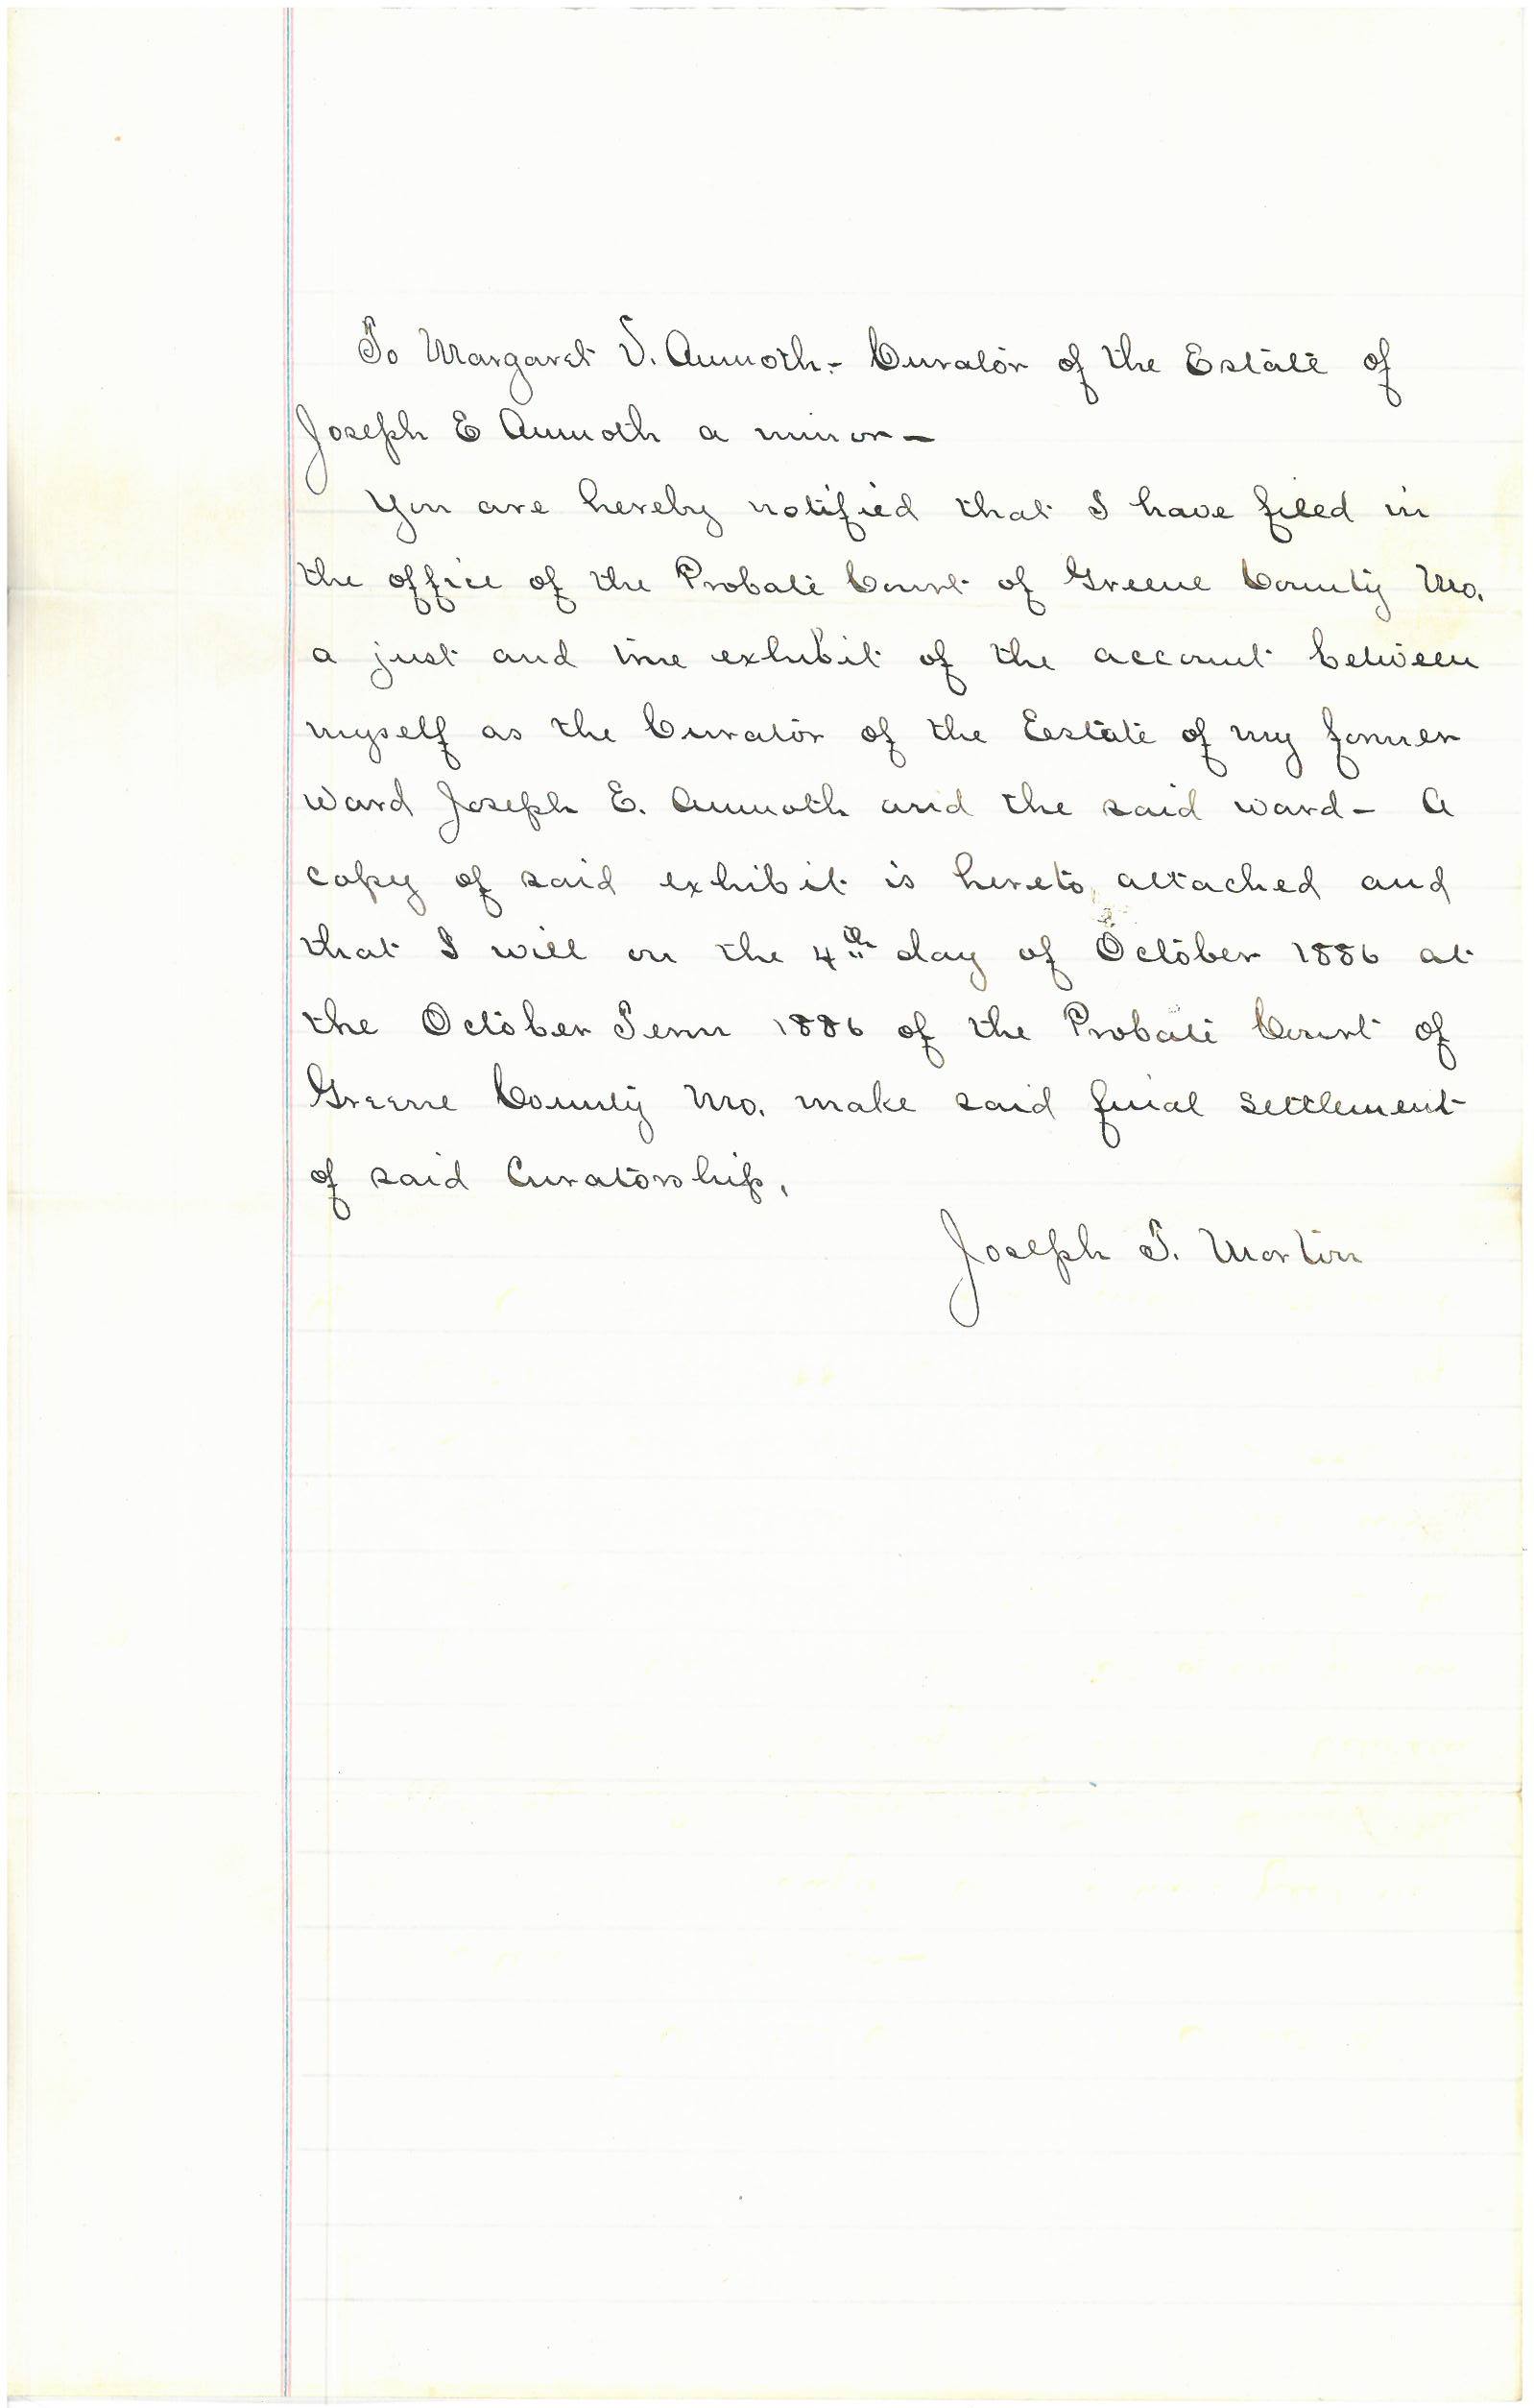 To Margaret V. Aumoth.- Curator of the Estate of
Joseph E Aumoth a minor—
You are hereby notified that I have filed in
the office of the Probate Court of Greene County Mo.
a just and true exhibit of the account between
myself as the Curator of the Estate of my former
ward Joseph E. Aumoth and the said ward— A
copy of said exhibit is hereto attached and
that I will on the 4th day of October 1886 at
the October Term 1886 of the Probate Court of
Greene County Mo. make said final settlement
of said Curatorship.
Joseph T. Morton